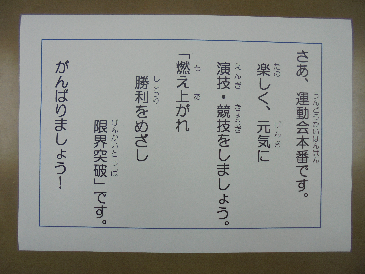 さあ、運動会本番です。
楽しく、元気に
演技・競技をしましょう。
「燃え上がれ
勝利をめざし
限界突破」です。
がんばりましょう！